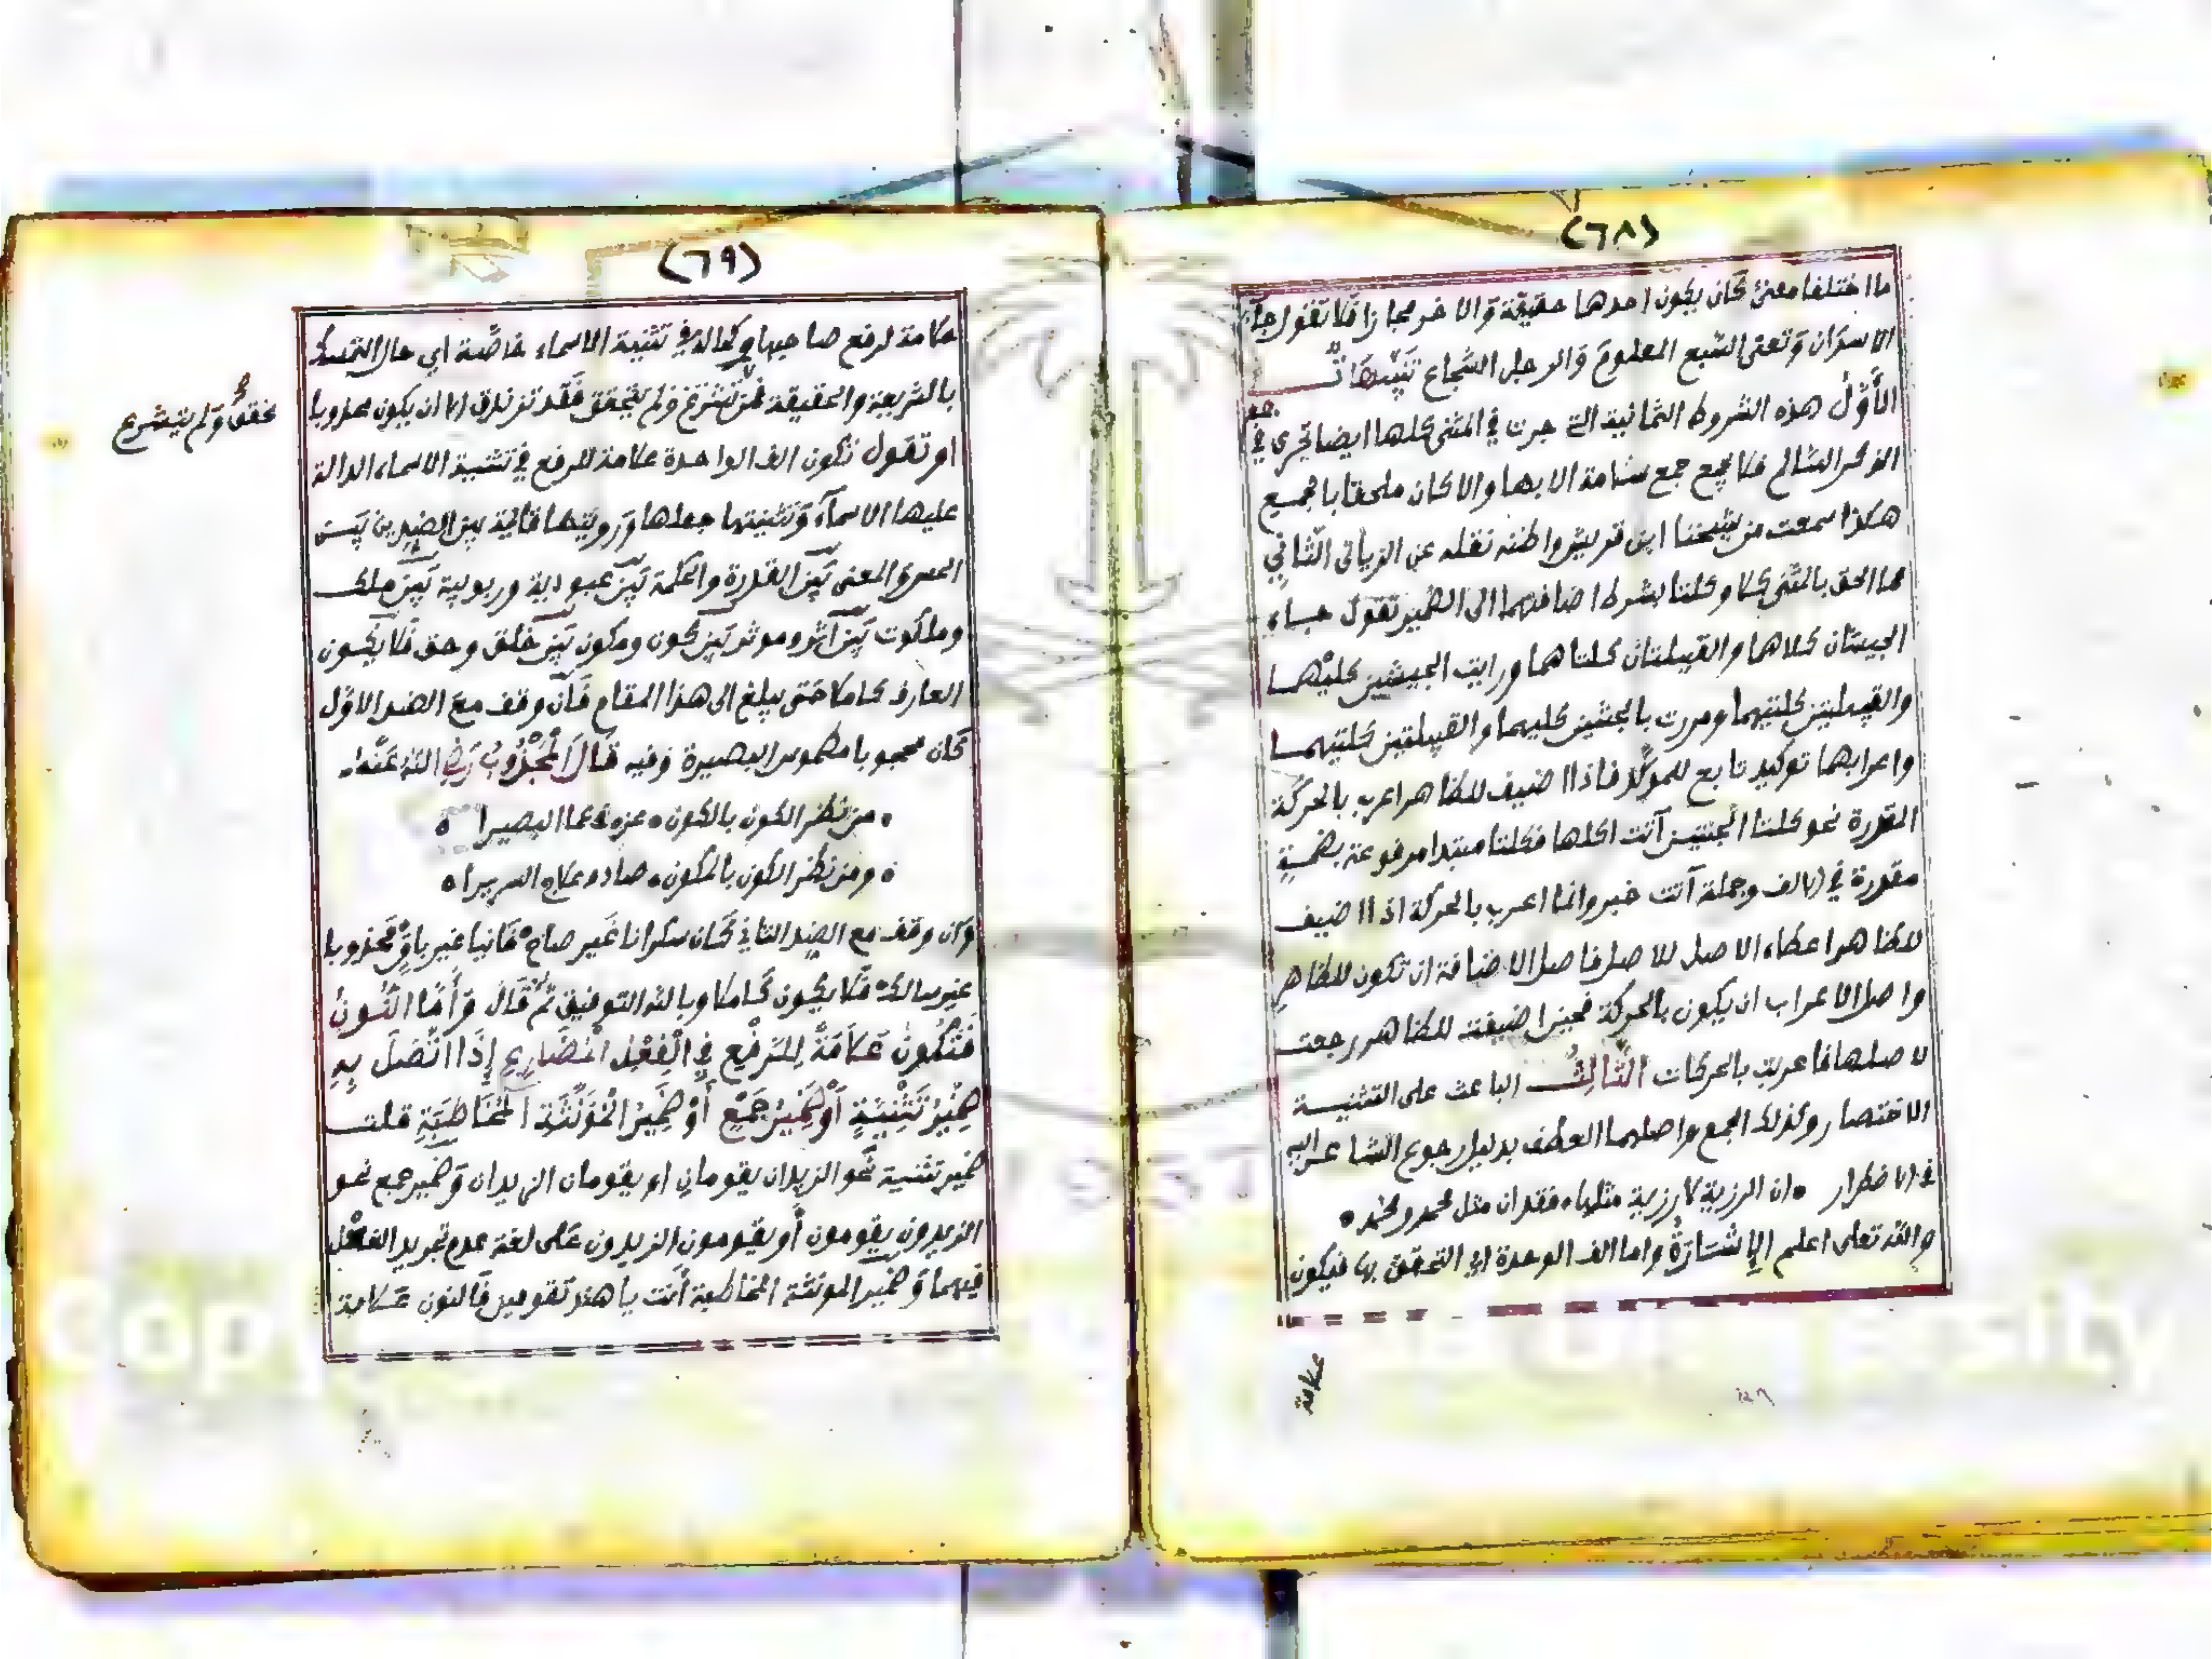 (٦٨)
ما اختلفا معنى كان يكون احدها حقيقة والاخر مجازا فلا تقول جاء
الاسدان وتعنى السبع المعلوم والرجل الشجاع تنبيهات
الأول هذه الشروط الثمانية التى جرت في المثنى كلها ايضا تجرى في جمع
المذكر السالم فلا يجمع جمع سلامة الا بها والا كان ملحقا بالجمع
هكذا سمعت من شيخنا ابن قريش واظنه نقله عن الزياتى الثاني
مما الحق بالمثنى كلا وكلتا بشرط اضافتهما الى الضمير تقول جاء
الجيشان كلاهما والقبيلتان كلتاهما ورايت الجيشين كليهما
والقبيلتين كلتيهما ومررت بالجشين كليهما والقبيلتين كلتيهما
واعرابهما توكيد تابع للموكد فاذا اضيف للظاهر اعرب بالحركة
المقدرة نحو كلتا الجنتين آتت اكلها فكلتا مبتدا مرفوعة بضمة
مقدرة في الالف وجملة آتت خبر وانما اعرب بالحركة اذا اضيف
للظاهر اعطاء الاصل للاصل فاصل الاضافة ان تكون للظاهر
واصل الاعراب ان يكون بالحركة فحين اضيفت للظاهر رجعت
لاصلها فاعربت بالحركات الثالث الباعث على التثنية
الاختصار وكذلك الجمع واصلهما العطف بدليل رجوع الشاعر اليه
في الاضطرار ۰ ان الرزية لا رزية مثلها ۰ فقدان مثل محمد ومحمد ۰
والله تعلى اعلم الإشارة واما الف الوحدة اي التحقق بها فيكون
علامة
(٦٩)
علامة لرفع صاحبها وكماله في تثنية الاسماء خاصة اي حال التمسك
بالشريعة والحقيقة فمن تشرع ولم يتحقق فقد تزندق الا ان يكون مجذوبا
تحقق ولم يتشرع
او تقول تكون الف الواحدة علامة للرفع في تثنية الاسماء الدالة
عليها الاسماء وتثنيتها جعلها ورويتها قائمة بين الضدين بين
الحس والمعنى بين القدرة والحكمة بين عبودية وربوبية بين ملك
وملكوت بين اثر وموثر بين كون ومكون بين خلق وحق فلا يكون
العارف كاملا حتى يبلغ الى هذا المقام فان وقف مع الضد الاول
كان محجوبا مطموس البصيرة وفيه قال المجذوب رضي الله عنه
۰ من نظر الكون بالكون ۰ عزه عما البصيرا ۰
۰ ومن نظر الكون بالمكون ۰ صادف علاج السريرا ۰
وان وقف مع الضد الثاني كان سكرانا غير صاح فانيا غير باق مجذوبا
غير سالك فلا يكون كاملا وبالله التوفيق ثم قال وأما النون
فتكون علامة للرفع في الفعل المضارع إذا اتصل به
ضمير تثنية أو ضمير جمع أو ضمير المؤنثة المخاطبة قلت
ضمير تثنية نحو الزيدان يقومان او يقومان الزيدان وضمير جمع نحو
الزيدون يقومون أو يقومون الزيدون على لغة عدم تجريد الفعل
فيهما وضمير المونثة المخاطبة أنت يا هند تقومين فالنون علامة